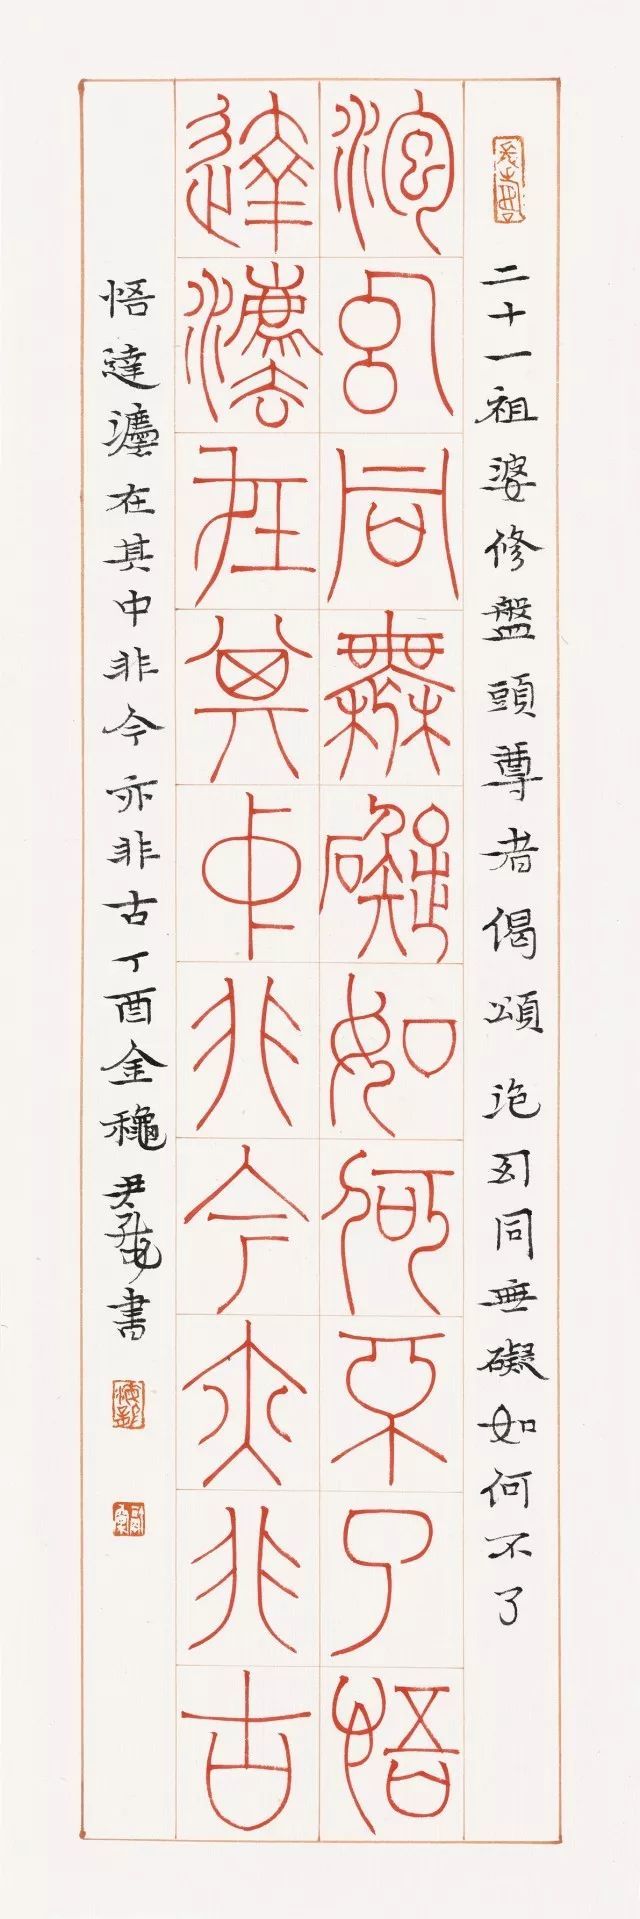 二十一祖婆修盤頭尊者偈頌 泡幻同無礙如何不了
泡幻同無礙如何不了悟
達灋在其中非今亦非古
悟達灋在其中非今亦非古丁酉金穐尹海龍書
海龍